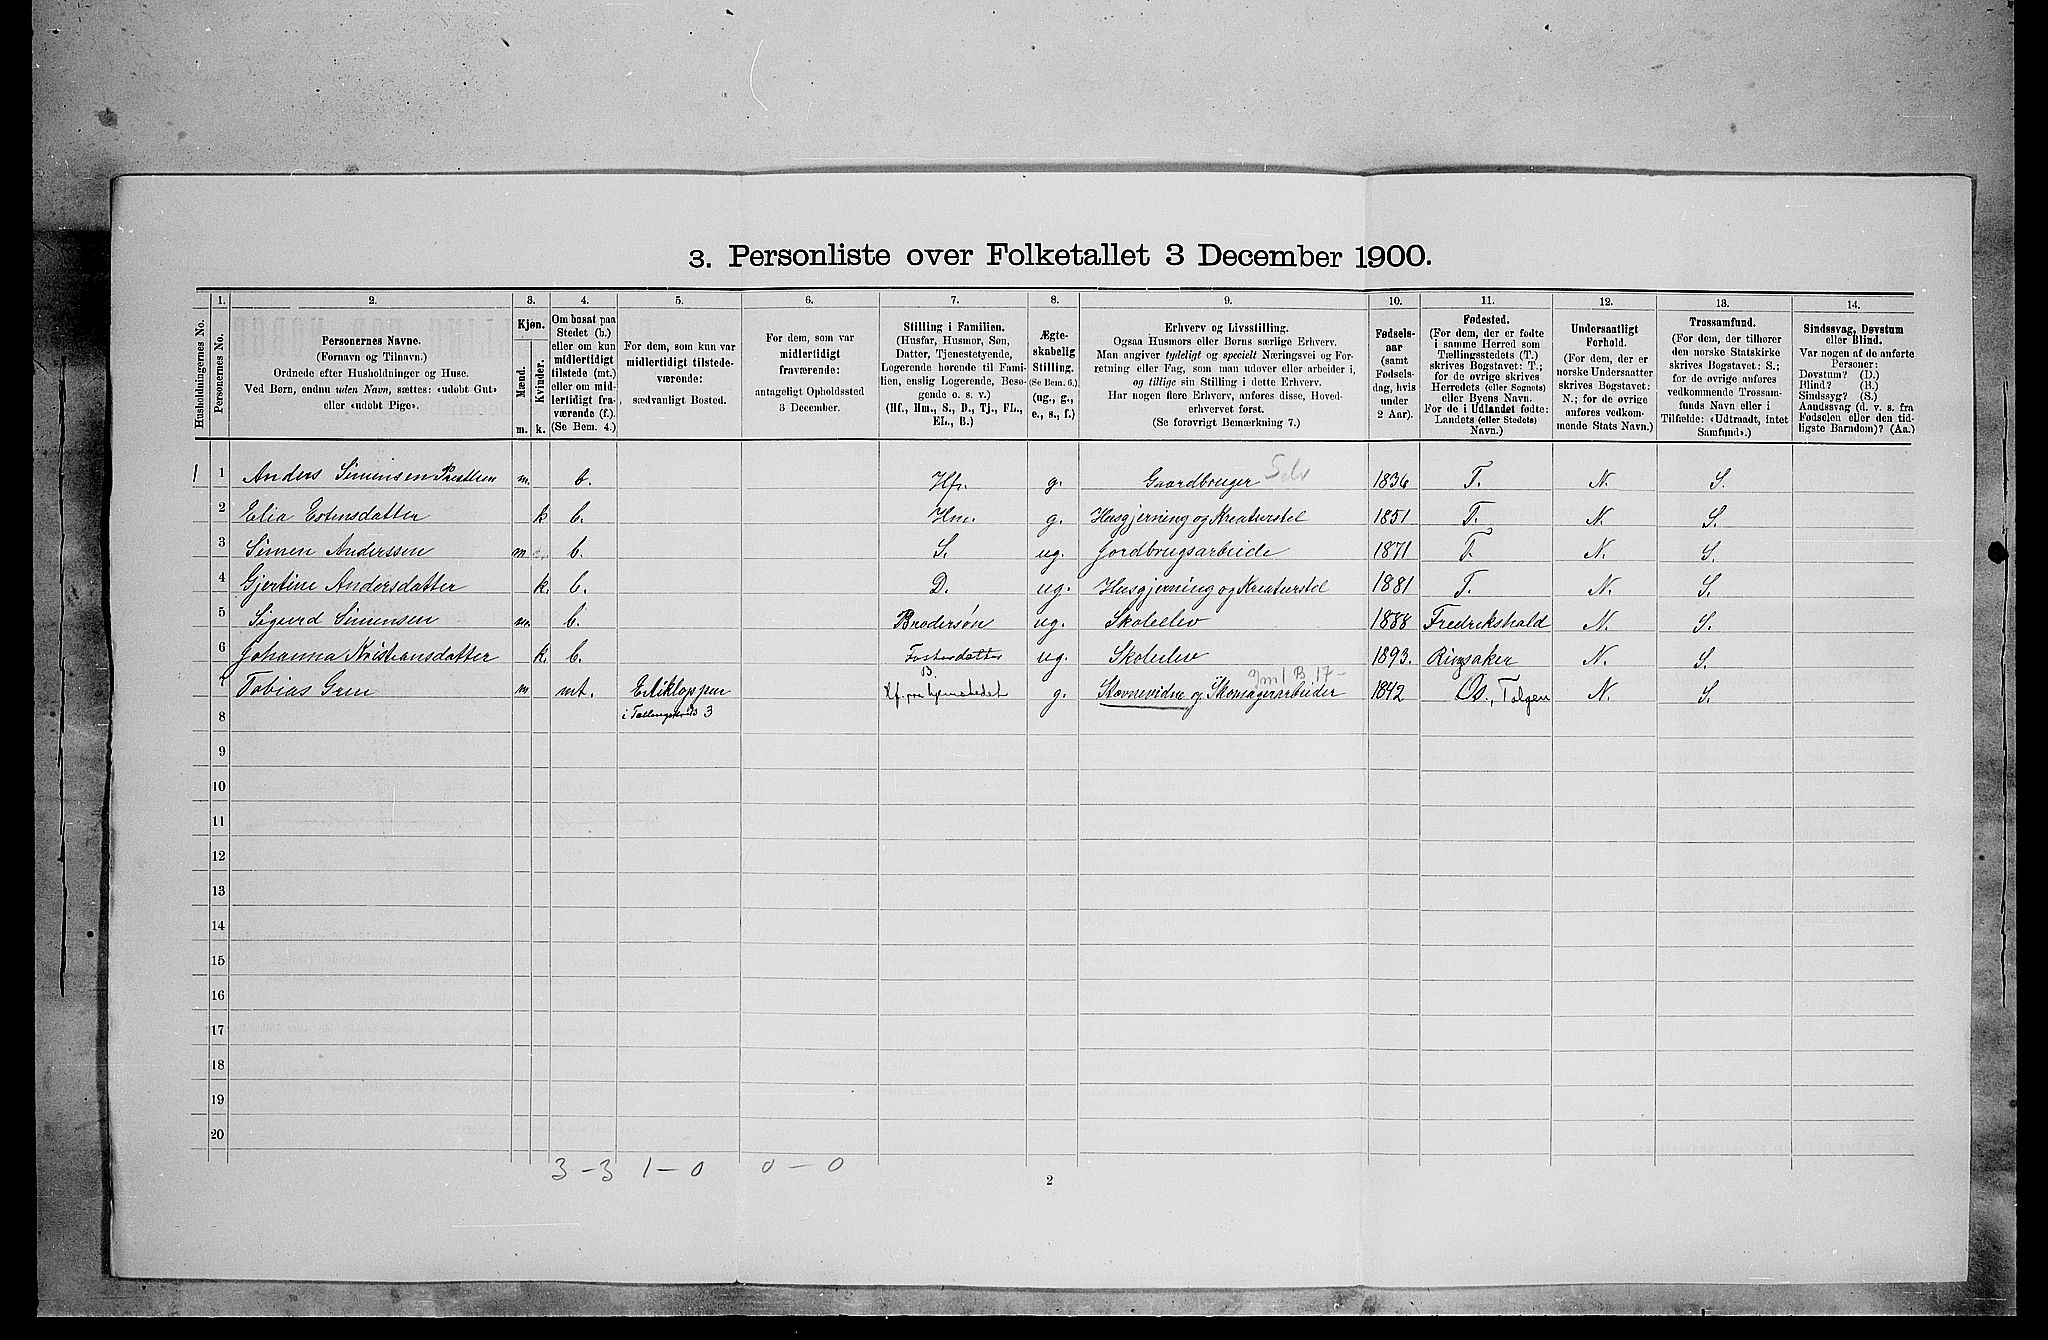 3. Personliste over Folketallet 3 December 1900.
1. 2. 3. 4. 5. 6. 7. 8. 9. 10. 11. 12. 13. 14.
Husholdningernes No.
Personernes No.
Personernes Navne.
(Fornavn og Tilnavn.)
Ordnede efter Husholdninger og Huse.
Ved Børn, endnu uden Navn, sættes: «udøbt Gut»
eller «udøbt Pige».
Kjøn.
Mænd.
Kvinder.
m. k.
Om bosat paa
Stedet (b.)
eller om kun
midlertidigt
tilstede (mt.)
eller om mid-
lertidigt fra-
værende (f.)
(Se Bem. 4.)
For dem, som kun var
midlertidigt tilstede-
værende:
sædvanligt Bosted.
For dem, som var
midlertidigt
fraværende:
antageligt Opholdssted
3 December.
Stilling i Familien.
(Husfar, Husmor, Søn,
Datter, Tjenestetyende,
Logerende hørende til Fami-
lien, enslig Logerende, Besø-
gende o. s. v.)
(Hf., Hm., S., D., Tj., FL.,
EL., B.)
Ægte-
skabelig
Stilling.
(Se Bem. 6.)
(ug., g.,
e., s., f.)
Erhverv og Livsstilling.
Ogsaa Husmors eller Børns særlige Erhverv.
Man angiver tydeligt og specielt Næringsvei og For-
retning eller Fag, som man udøver eller arbeider i,
og tillige sin Stilling i dette Erhverv.
Har nogen flere Erhverv, anføres disse, Hoved-
erhvervet først.
(Se forøvrigt Bemærkning 7.)
Fødsels-
aar
(samt
Fødsels-
dag, hvis
under
2 Aar).
Fødested.
(For dem, der er fødte
i samme Herred som
Tællingsstedets (T.)
skrives Bogstavet: T.;
for de øvrige skrives
Herredets (eller Sognets)
eller Byens Navn.
For de i Udlandet fødte:
Landets (eller Stedets)
Navn.)
Undersaatligt
Forhold.
(For dem, der er
norske Undersaatter
skrives Bogstavet:
N.; for de øvrige
anføres vedkom-
mende Stats Navn.)
Trossamfund.
(For dem, der tilhører
den norske Statskirke
skrives Bogstavet: S.;
for de øvrige anføres
vedkommende Trossam-
funds Navn eller i
Tilfælde: «Udtraadt, intet
Samfund».)
Sindssvag, Døvstum
eller Blind.
Var nogen af de anførte
Personer:
Døvstum? (D.)
Blind? (B.)
Sindssyg? (S.)
Aandssvag (d. v. s. fra
Fødselen eller den tid-
ligste Barndom)? (Aa.)
1 1 Anders Simensen Præstlien m. b. Hf. g. Gaardbruger Selv 1836 T. N. S.
2 Elia Estensdatter k b. Hm. g. Husgjerning og Kreaturstel 1851 T. N. S.
3 Simen Anderssen m b. S. ug. Jordbrugsarbeide 1871 T. N. S.
4 Gjertine Andersdatter k. b. D. ug. Husgjerning og Kreaturstel 1881 T. N. S.
5 Sigurd Simensen m. b. Brodersøn ug. Skoleelev 1888 Fredrikshald N. S.
6 Johanna Kristiansdatter k. b. Fosterdatter ug. Skoleelev 1893. Ringsaker N. S.
B. 1 B 17-
7 Tobias m mt. Hf. g. og Skomagerarbeider 1842 Os, Tolgen N. S.
8 3
9
10
11
12
13
14
15
16
17
18
19
20
3-3 1-0 0-0
2